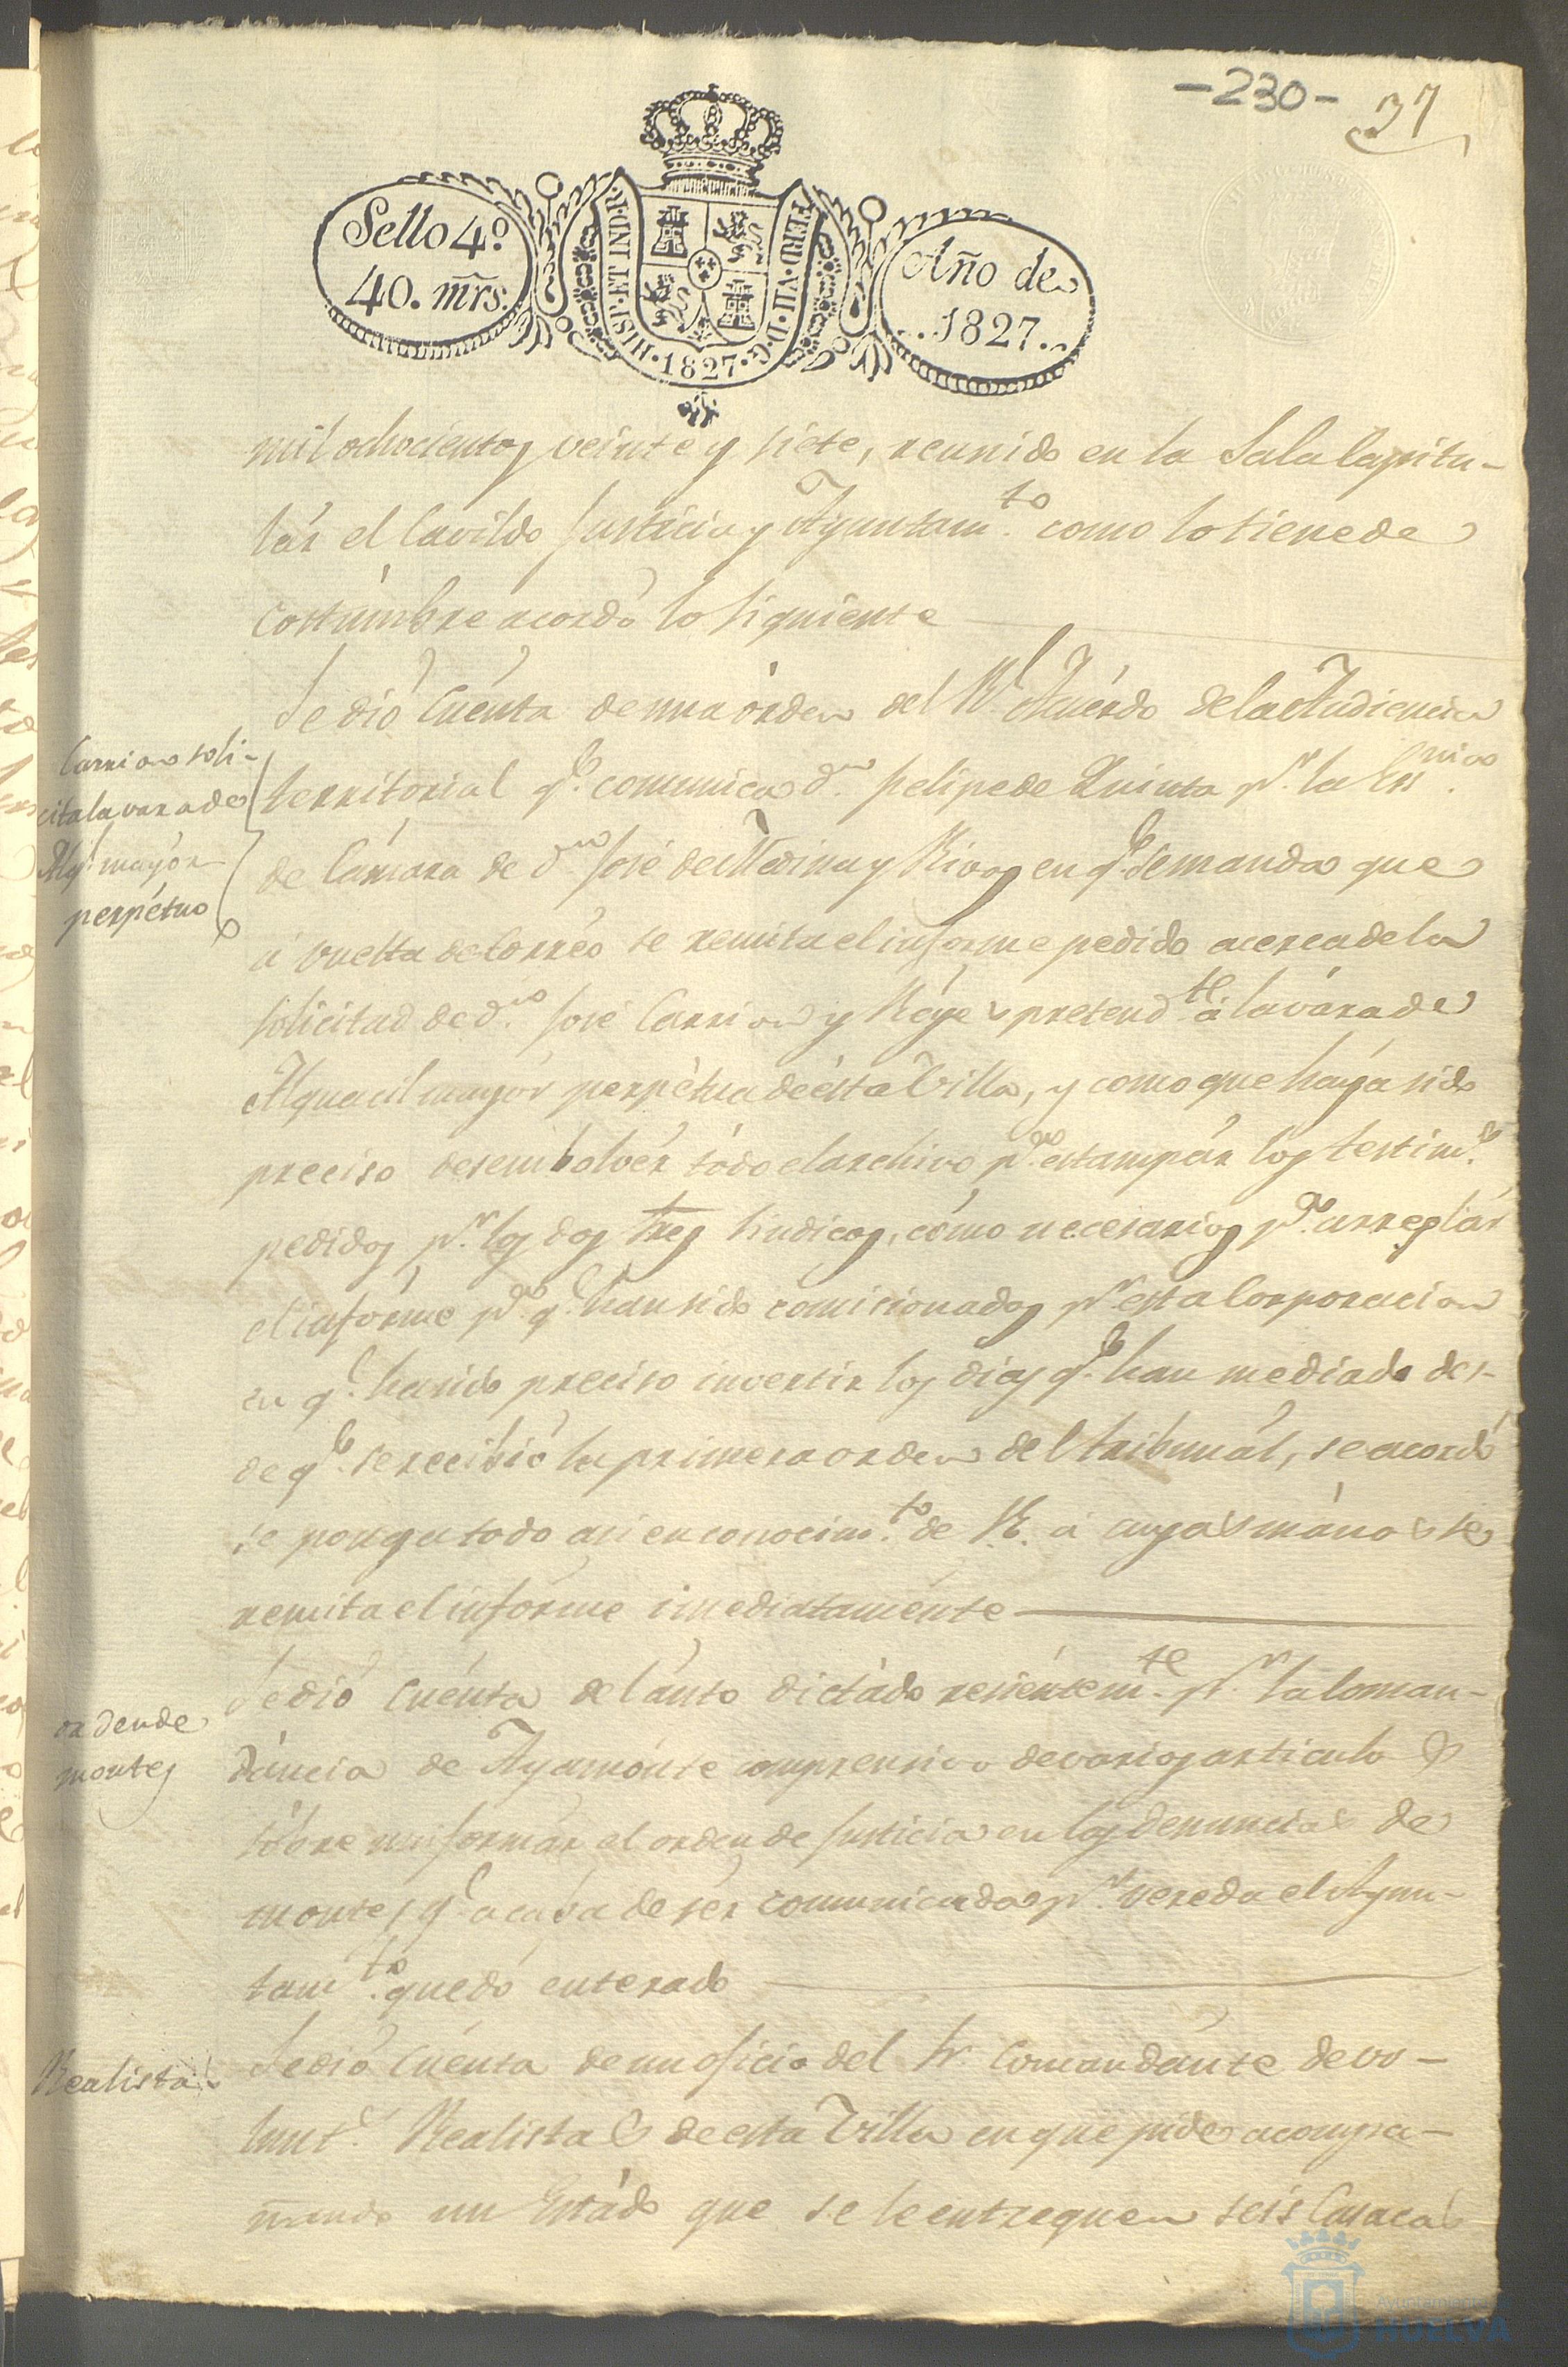 -230- 37
Sello 4º
40. mrs.
HISP. ET IND. R. FERD. VII. D. G. 1827.
Año de
1827.
mil ochocientos veinte y siete, reunido en la Sala Capitu-
lár el Cavildo Justicia y Ayuntam.to como lo tiene de
costúmbre acordó lo siguiente
Se dió Cuénta de una órden del Rl Acuérdo de la Audiencia
territorial q.e comunica d.n Felipe de Quinta p.r la Esnia.
de Cámara de d.n José de Medina y Rivas en q.e se manda que
á vuelta de Corréo se remita el infórme pedido acerca de la
solicitud de d.n José Carrion y Réyes pretend.te á la vára de
Alguacil mayór perpétua de ésta Villa, y como que háya sido
preciso desembolvér tódo el archivo p.a estampár los testim.s
pedidos p.r los dos Sres Sindicos, cómo necesarios p.a arreglár
el infórme p.a q.e han sido comicionados p.r esta Corporacion
en q.e ha sido preciso invertir los dias q.e han mediado des-
de q.e se recibió la primera orden del tribunál, se acordó
se ponga todo asi en conocim.to de V.E. á cuyas mános se
remita el infórme imediataménte
Se dió Cuénta del áuto dictádo reciéntem.te p.r la Coman-
dáncia de Ayamónte comprensivo de varios articulos
sóbre uniformár el orden de Justicia en las denuncias de
montes q.e acába de sér comunicada p.r vereda el Ayun-
tam.to quedó enterado
Se dió Cuénta de un oficio del Sr Comandánte de vo-
lunt.s Realistas de esta Villa en que pide acompa-
ñando un Estádo que se le entreguen seis Casacas
Carrion soli-
cita la vara de
Alg.l mayór
perpétuo
orden de
montes
Realistas
Ayuntamiento de
HUELVA